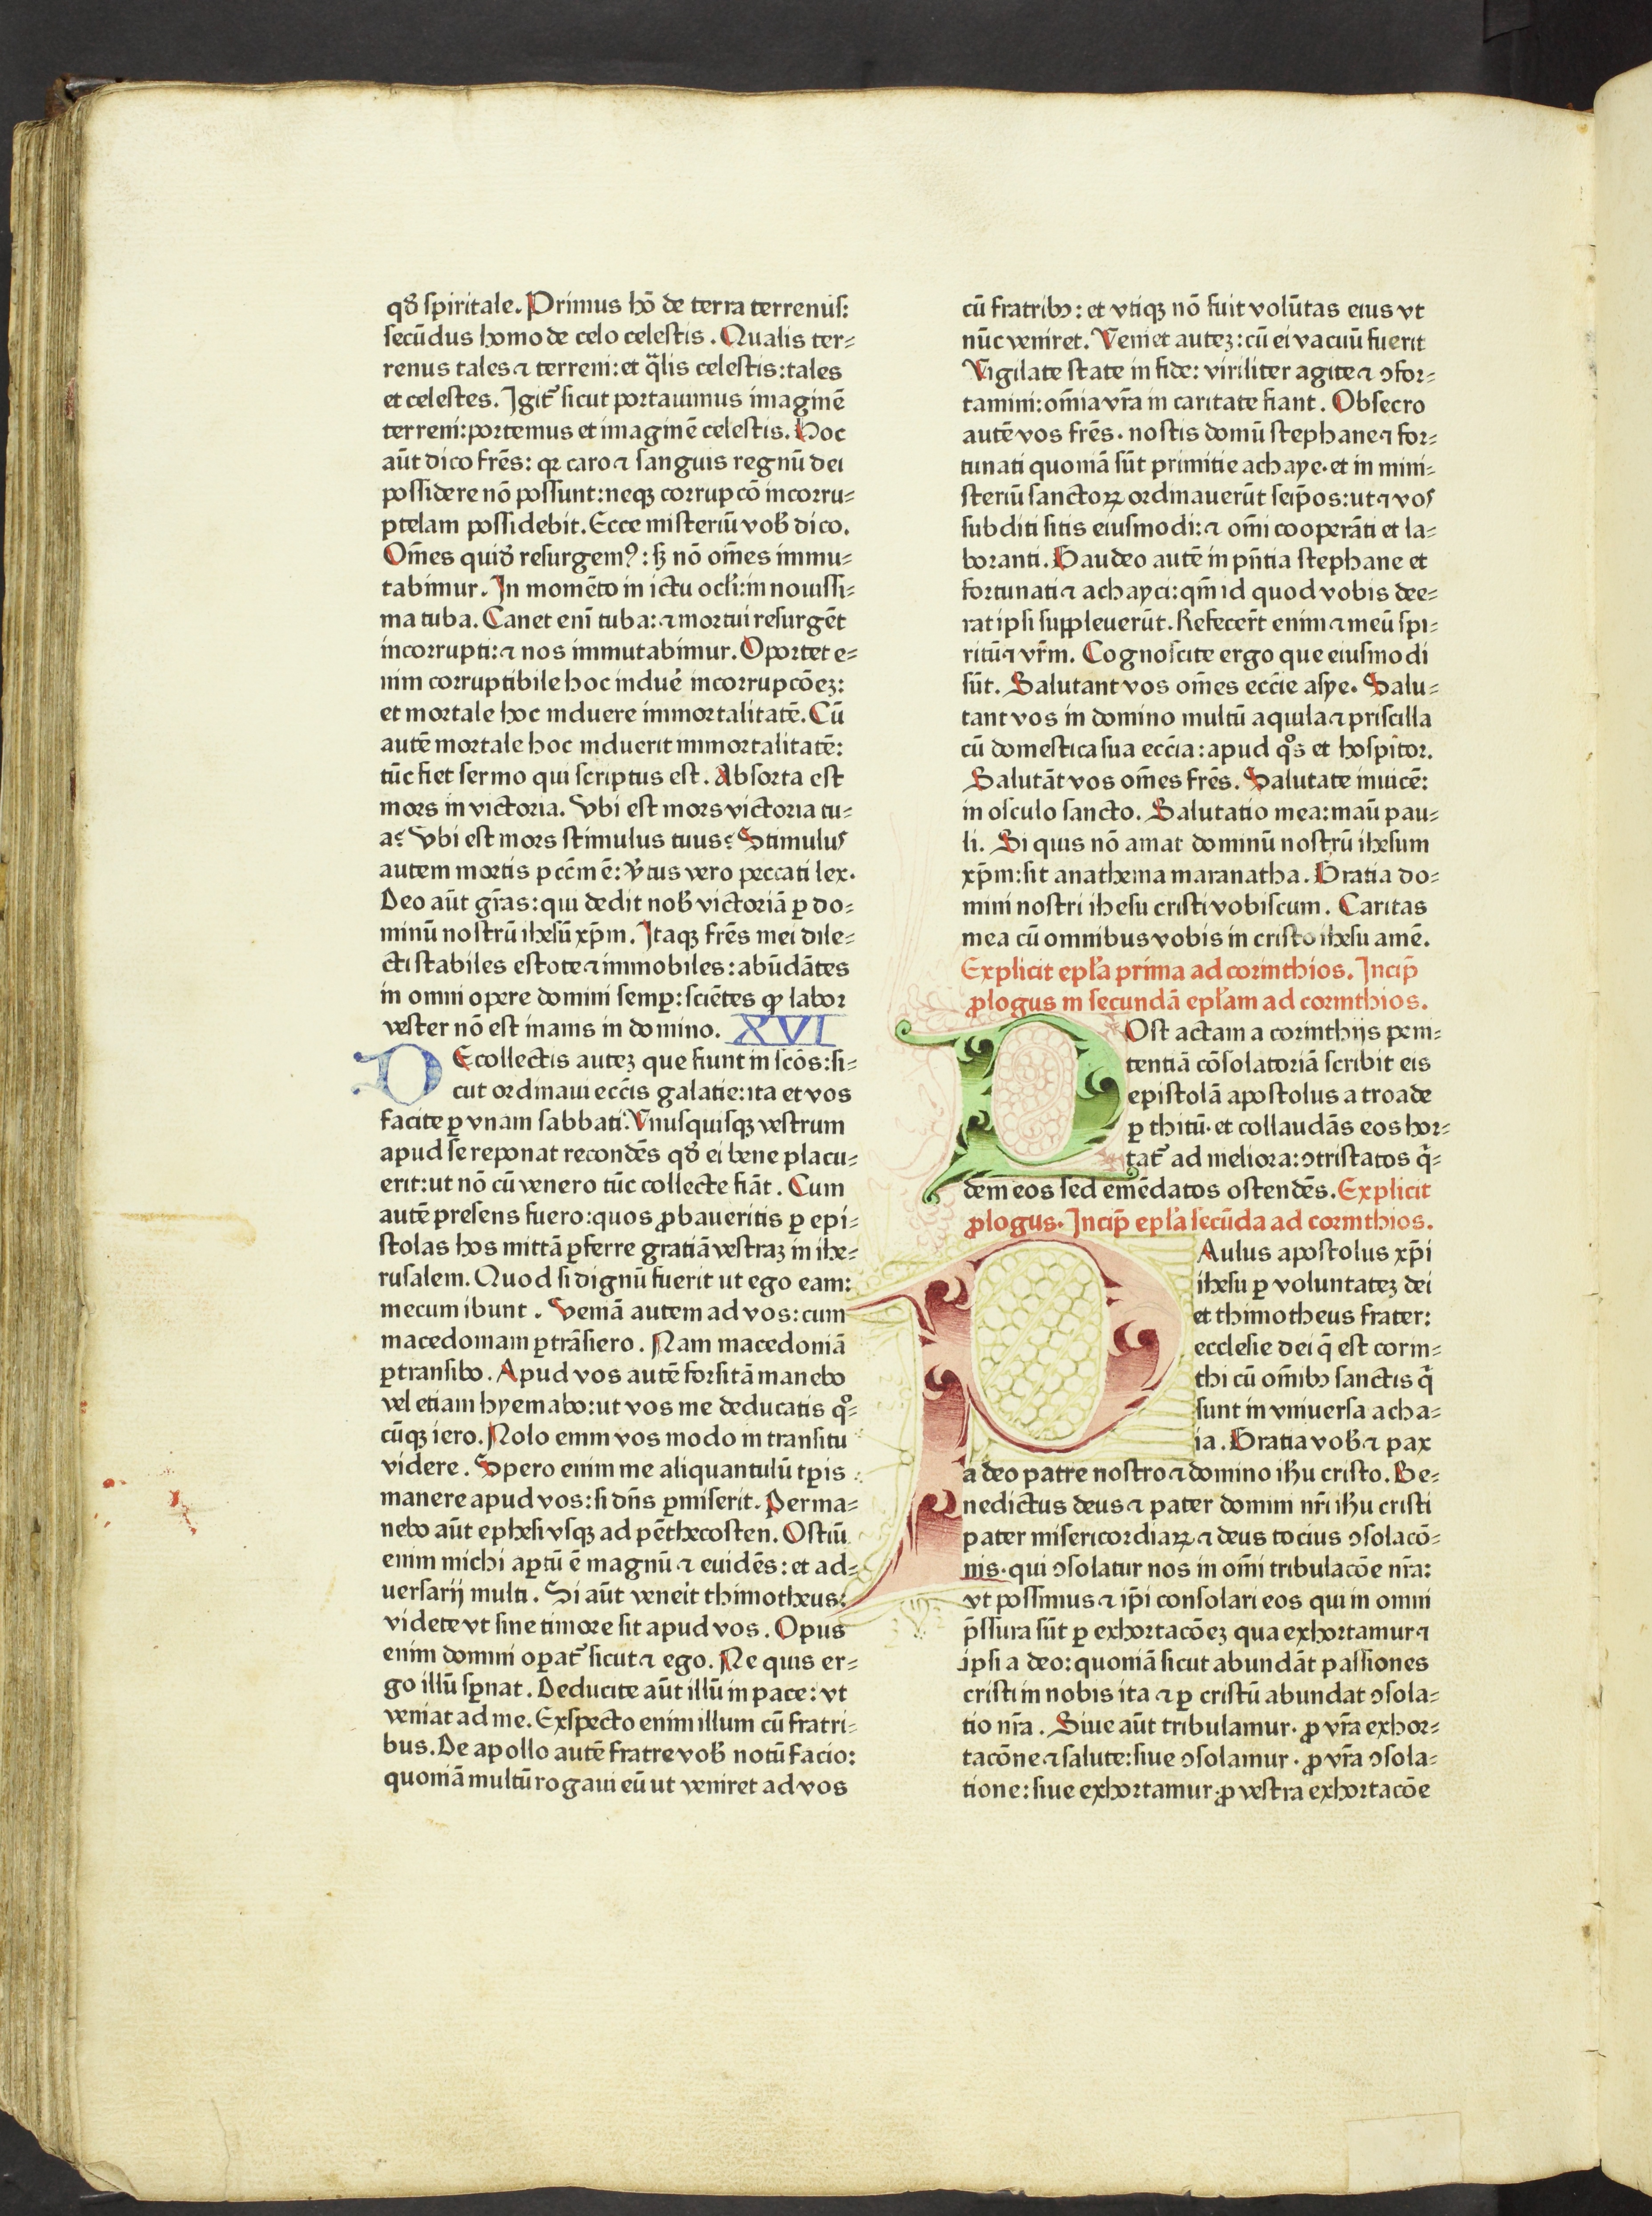 qđ spiritale. Primus hō de terra terrenus:
secūdus homo de celo celestis. Qualis ter⸗
renus tales ⁊ terreni: et q̄lis celestis: tales
et celestes. Igit᷑ sicut portauimus imaginē
terreni: portemus et imaginē celestis. Hoc
aūt dico frēs: qꝛ caro ⁊ sanguis regnū dei
possidere nō possunt: neqꝫ corrupcō incorru⸗
ptelam possidebit. Ecce misteriū vob̄ dico.
Om̄es quid̄ resurgemꝰ: sꝫ nō om̄es immu⸗
tabimur. In momēto in ictu ocl̄i: in nouissi⸗
ma tuba. Canet eni tuba: ⁊ mortui resurgēt
incorrupti: ⁊ nos immutabimur. Oportet e⸗
nim corruptibile hoc induē incorrupcōeꝫ:
et mortale hoc induere immortalitatē. Cū
autē mortale hoc induerit immortalitatē:
tūc fiet sermo qui scriptus est. Absorta est
mors in victoria. Vbi est mors victoria tu⸗
a? Vbi est mors stimulus tuus? Stimulus
autem mortis pccm̄ ē: v̄tus vero peccati lex.
Deo aūt gr̄as: qui dedit nob̄ victoriā ꝑ do⸗
minū nostrū ihesū xp̄m. Itaqꝫ frēs mei dile⸗
cti stabiles estote ⁊ immobiles: abūdātes
in omni opere domini semꝑ: sciētes ꝙ labor
vester nō est inanis in domino. XVI
DE collectis auteꝫ que fiunt in scōs: si⸗
cut ordinaui eccīs galatie: ita et vos
facite ꝑ vnam sabbati. Vnusquisqꝫ vestrum
apud se reponat recondēs qđ ei bene placu⸗
erit: ut nō cū venero tūc collecte fiāt. Cum
autē presens fuero: quos ꝓbaueritis ꝑ epi⸗
stolas hos mittā ꝑferre gratiā vestraꝫ in ihe⸗
rusalem. Quod si dignū fuerit ut ego eam:
mecum ibunt. Veniā autem ad vos: cum
macedoniam ꝑtrāsiero. Nam macedoniā
ꝑtransibo. Apud vos autē forsitā manebo
vel etiam hyemabo: ut vos me deducatis qͦ⸗
cūqꝫ iero. Nolo enim vos modo in transitu
videre. Spero enim me aliquantulū tꝑis
manere apud vos: si dn̄s ꝑmiserit. Perma⸗
nebo aūt ephesi vsqꝫ ad pēthecosten. Ostiū
enim michi aꝑtū ē magnū ⁊ euidēs: et ad⸗
uersarij multi. Si aūt veneit thimotheus:
videte vt sine timore sit apud vos. Opus
enim domini oꝑat᷑ sicut ⁊ ego. Ne quis er⸗
go illū sꝑnat. Deducite aūt illū in pace: vt
veniat ad me. Exspecto enim illum cū fratri⸗
bus. De apollo autē fratre vob̄ notū facio:
quoniā multū rogaui eū ut veniret ad vos
cū fratribꝯ: et vtiqꝫ nō fuit volūtas eius vt
nūc veniret. Veniet auteꝫ: cū ei vacuū fuerit
Vigilate state in fide: viriliter agite ⁊ ꝯfor⸗
tamini: om̄ia vr̄a in caritate fiant. Obsecro
autē vos frēs. nostis domū stephane ⁊ for⸗
tunati quoniā sūt primitie achaye. et in mini⸗
steriū sanctoꝝ ordinauerūt seip̄os: ut ⁊ vos
subditi sitis eiusmodi: ⁊ om̄i cooperāti et la⸗
boranti. Gaudeo autē in pn̄tia stephane et
fortunati ⁊ achayci: qm̄ id quod vobis dee⸗
rat ipsi suppleuerūt. Refecer̄t enim ⁊ meū spi⸗
ritū ⁊ vr̄m. Cognoscite ergo que eiusmodi
sūt. Salutant vos om̄es eccīe asye. Salu⸗
tant vos in domino multū aquila ⁊ priscilla
cū domestica sua eccīa: apud qͦs et hospitor.
Salutāt vos om̄es frēs. Salutate inuicē:
in osculo sancto. Salutatio mea: manū pau⸗
li. Si quis nō amat dominū nostrū ihesum
xp̄m: sit anathema maranatha. Gratia do⸗
mini nostri ihesu cristi vobiscum. Caritas
mea cū omnibus vobis in cristo ihesu amē.
Explicit epl̄a prima ad corinthios. Incip̄
ꝓlogus in secundā epl̄am ad corinthios.
POst actam a corinthijs peni⸗
tentiā cōsolatoriā scribit eis
epistolā apostolus a troade
ꝑ thitū. et collaudās eos hor⸗
tat᷑ ad meliora: ꝯtristatos q̄⸗
dem eos sed emēdatos ostendēs. Explicit
ꝓlogus. Incip̄ epl̄a secūda ad corinthios.
PAulus apostolus xp̄i
ihesu ꝑ voluntateꝫ dei
et thimotheus frater:
ecclesie dei q̄ est corin⸗
thi cū om̄ibꝯ sanctis q̄
sunt in vniuersa acha⸗
ia. Gratia vob̄ ⁊ pax
a deo patre nostro ⁊ domino ihū cristo. Be⸗
nedictus deus ⁊ pater domini nr̄i ihū cristi
pater misericordiaꝝ ⁊ deus tocius ꝯsolacō⸗
nis. qui ꝯsolatur nos in om̄i tribulacōe nr̄a:
vt possimus ⁊ ip̄i consolari eos qui in omni
p̄ssura sūt ꝑ exhortacōeꝫ qua exhortamur ⁊
ipsi a deo: quoniā sicut abundāt passiones
cristi in nobis ita ⁊ ꝑ cristū abundat ꝯsola⸗
tio nr̄a. Siue aūt tribulamur. ꝓ vr̄a exhor⸗
tacōne ⁊ salute: siue ꝯsolamur. ꝓ vr̄a ꝯsola⸗
tione: siue exhortamur. ꝓ vestra exhortacōe